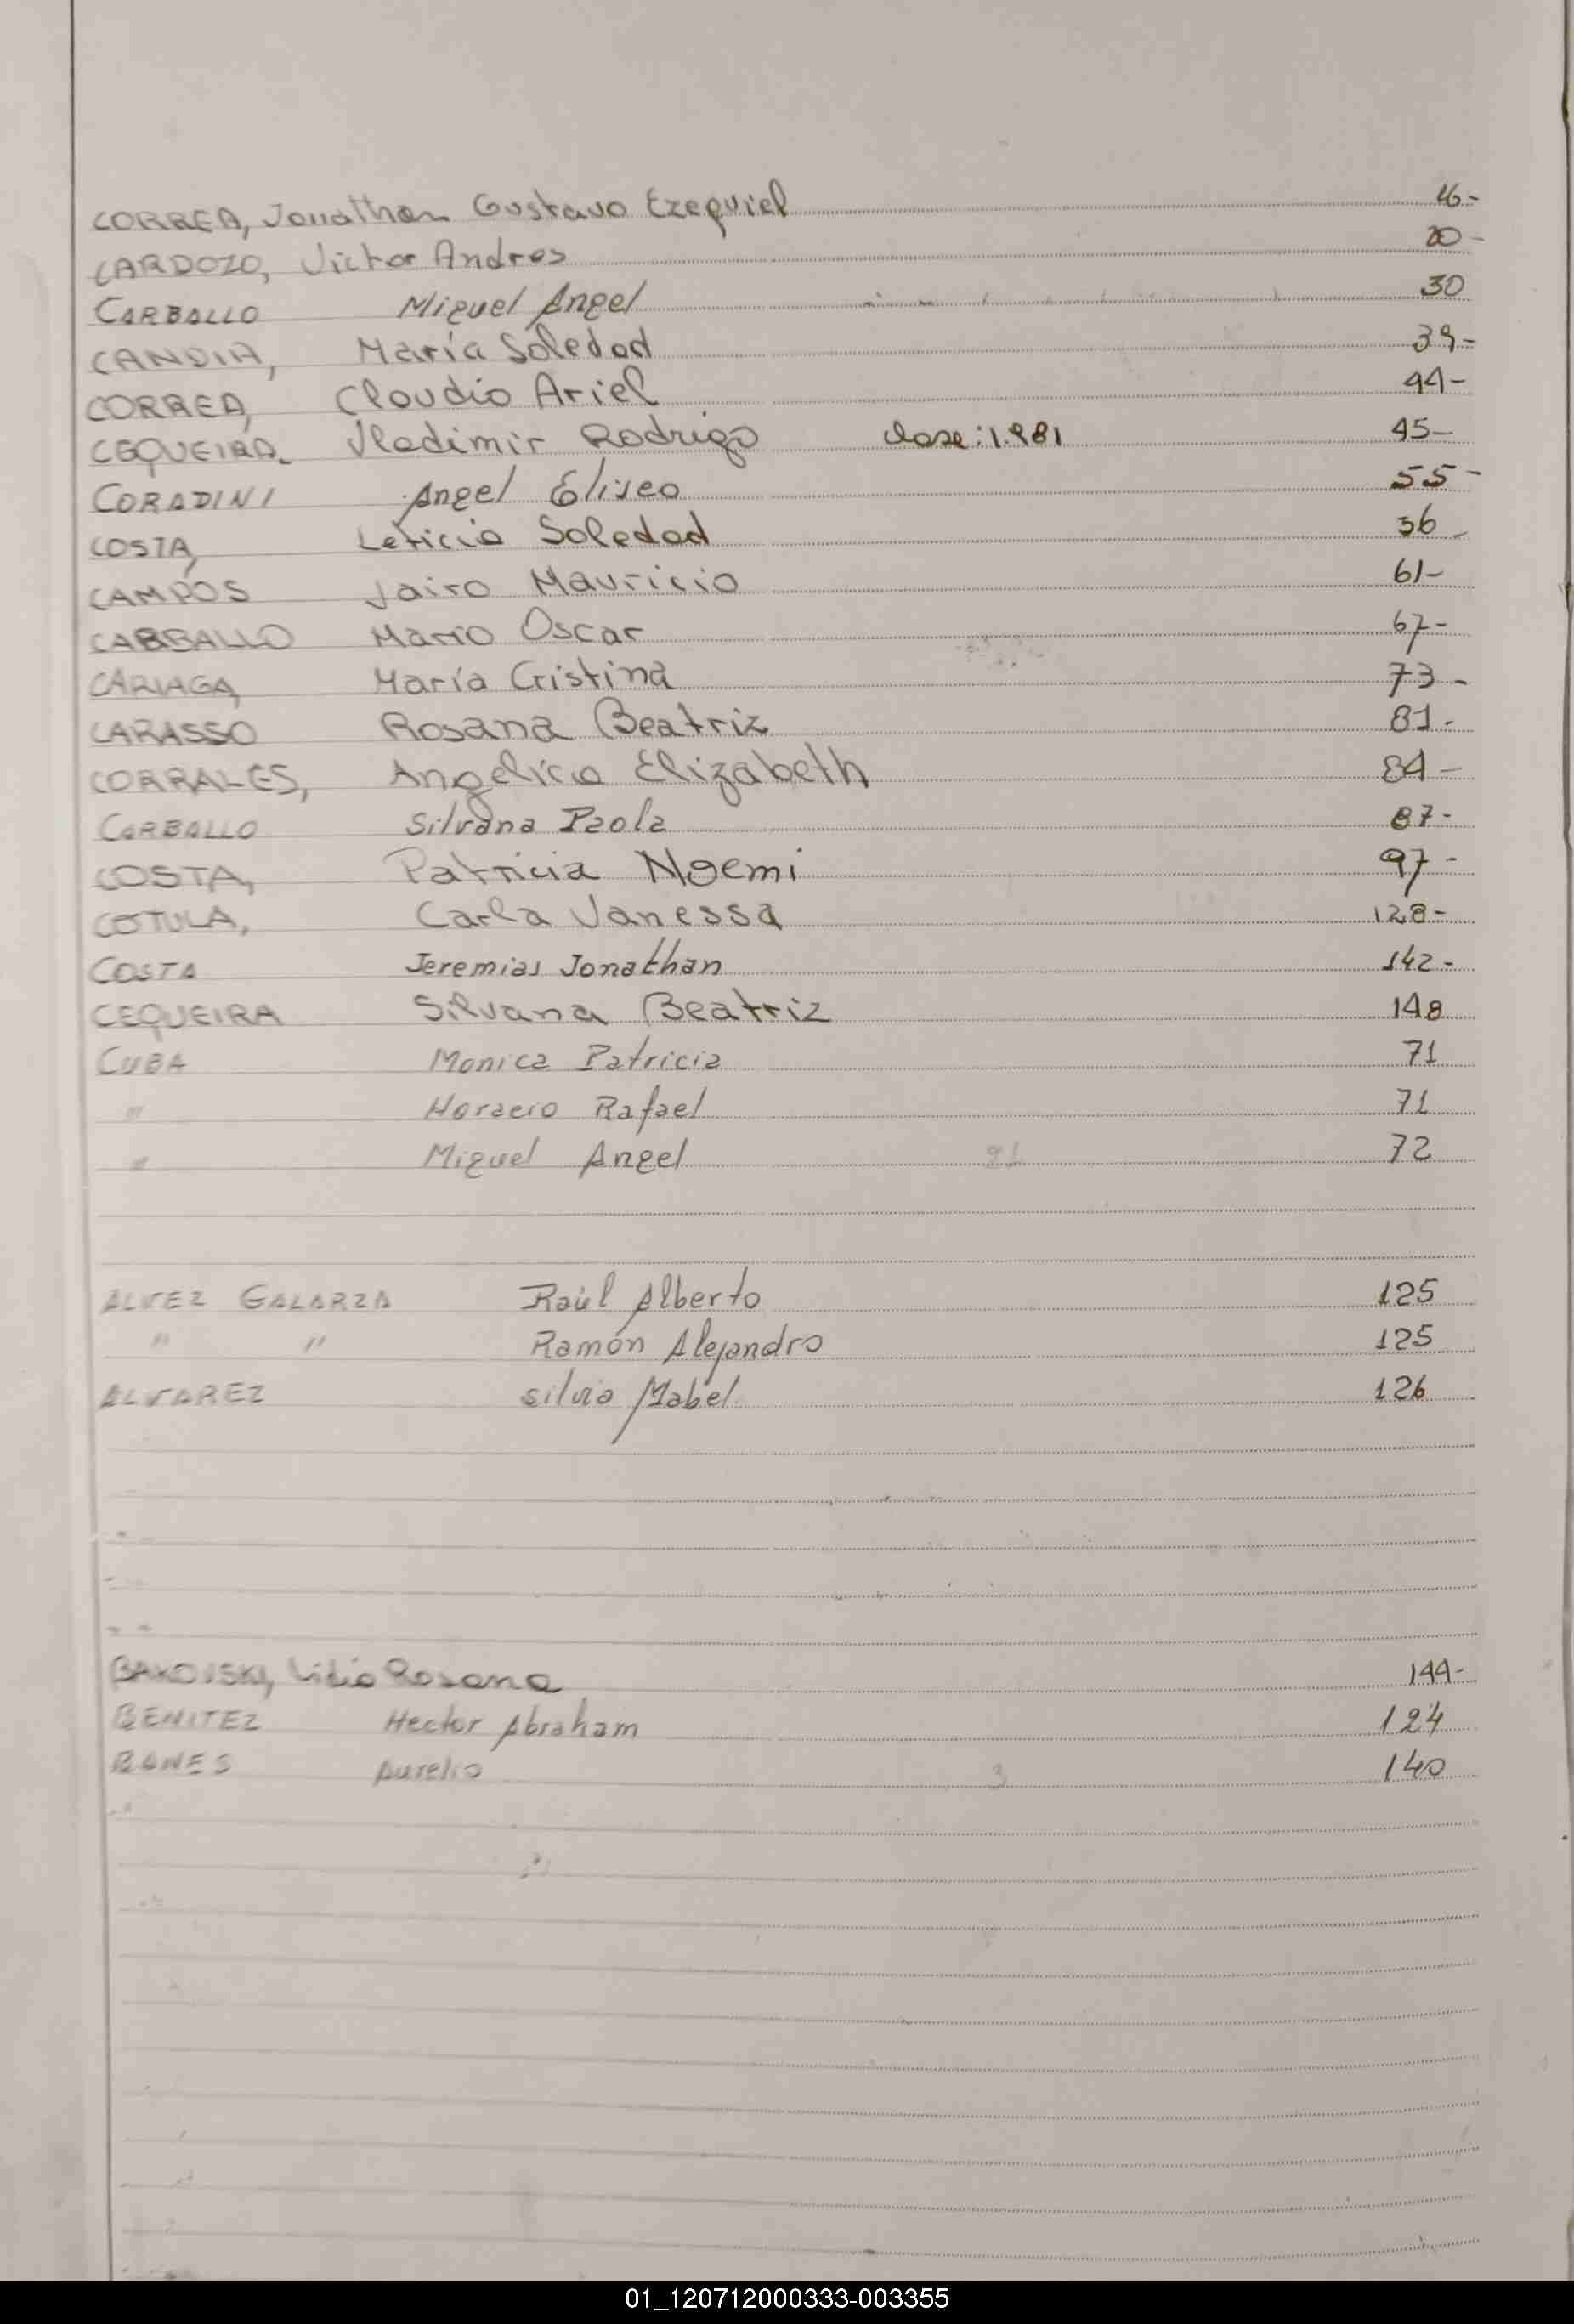 CORREA, Jonathan Gustavo Ezequiel 16-
CARDOZO, Victor Andres 20-
CARBALLO Miguel Angel 30
CANDIA, María Soledad 39-
CORREA, Claudio Ariel 44-
CEQUEIRA. Vladimir Rodrigo clase: 1.981 45-
CORADINI Angel Eliseo 55-
COSTA, Leticia Soledad 56-
CAMPOS Jairo Mauricio 61-
CARBALLO Mario Oscar 67-
CARIAGA, María Cristina 73-
CARASSO Rosana Beatriz 81-
CORRALES, Angelica Elizabeth 84-
CARBALLO Silvana Paola 87-
COSTA, Patricia Noemi 97-
COTULA, Carla Vanessa 128-
COSTA Jeremias Jonathan 142-
CEQUEIRA Silvana Beatriz 148
CUBA Monica Patricia 71
" Horacio Rafael 71
" Miguel Angel 21 72
ALVEZ GALARZA Raúl Alberto 125
" " Ramón Alejandro 125
ALVAREZ Silvia Mabel 126
BAKOVSKI, Lidia Rosana 144-
BENITEZ Hector Abraham 124
Aurelio 3 140
01_120712000333-003355